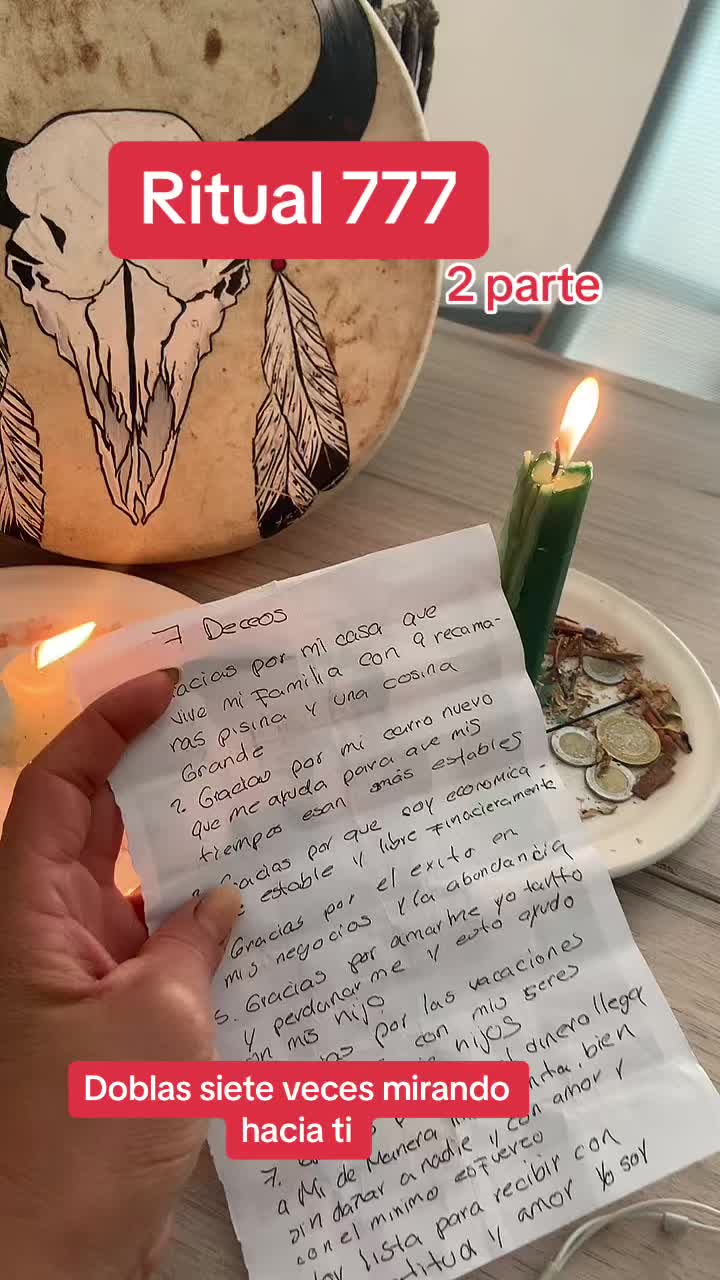 Ritual 777
2 parte
7 Deceos
acias por mi casa que
vive mi Familia con 9 recama-
ras pisina y una cosina
Grande
2 Gracias por mi carro nuevo
que me ayuda para que mis
tiempos esan más estables
Gracias por que soy economica-
e estable y libre Finacieramente
Gracias por el exito en
mis negocios y la abondancia
5. Gracias por amarme yo tanto
y perdonar me y esto ayudo
mis hijo
as por las vacaciones
con mis seres
hijos
dinero llegar
7.
a Mi de Manera
bien
sin dañar a nadie y con amor y
con el minimo esfuerzo
lista para recibir con
titud y amor yo soy
Doblas siete veces mirando
hacia ti